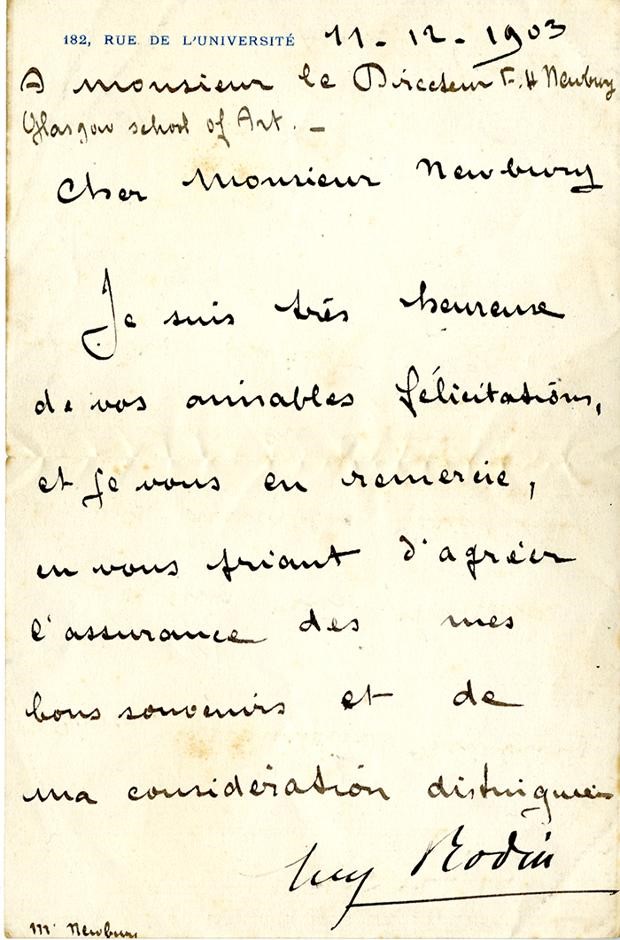 182, RUE DE L'UNIVERSITÉ 11-12-1903
A monsieur le Directeur F. H Newbury
Glasgow school of Art. –
Cher Monsieur Newbury
Je suis très heureuse
de vos aimables félicitations,
et je vous en remercie,
en vous priant d'agréer
l'assurance des mes
bons souvenirs et de
ma considération distinguée
Aug Rodin
Mr Newbury